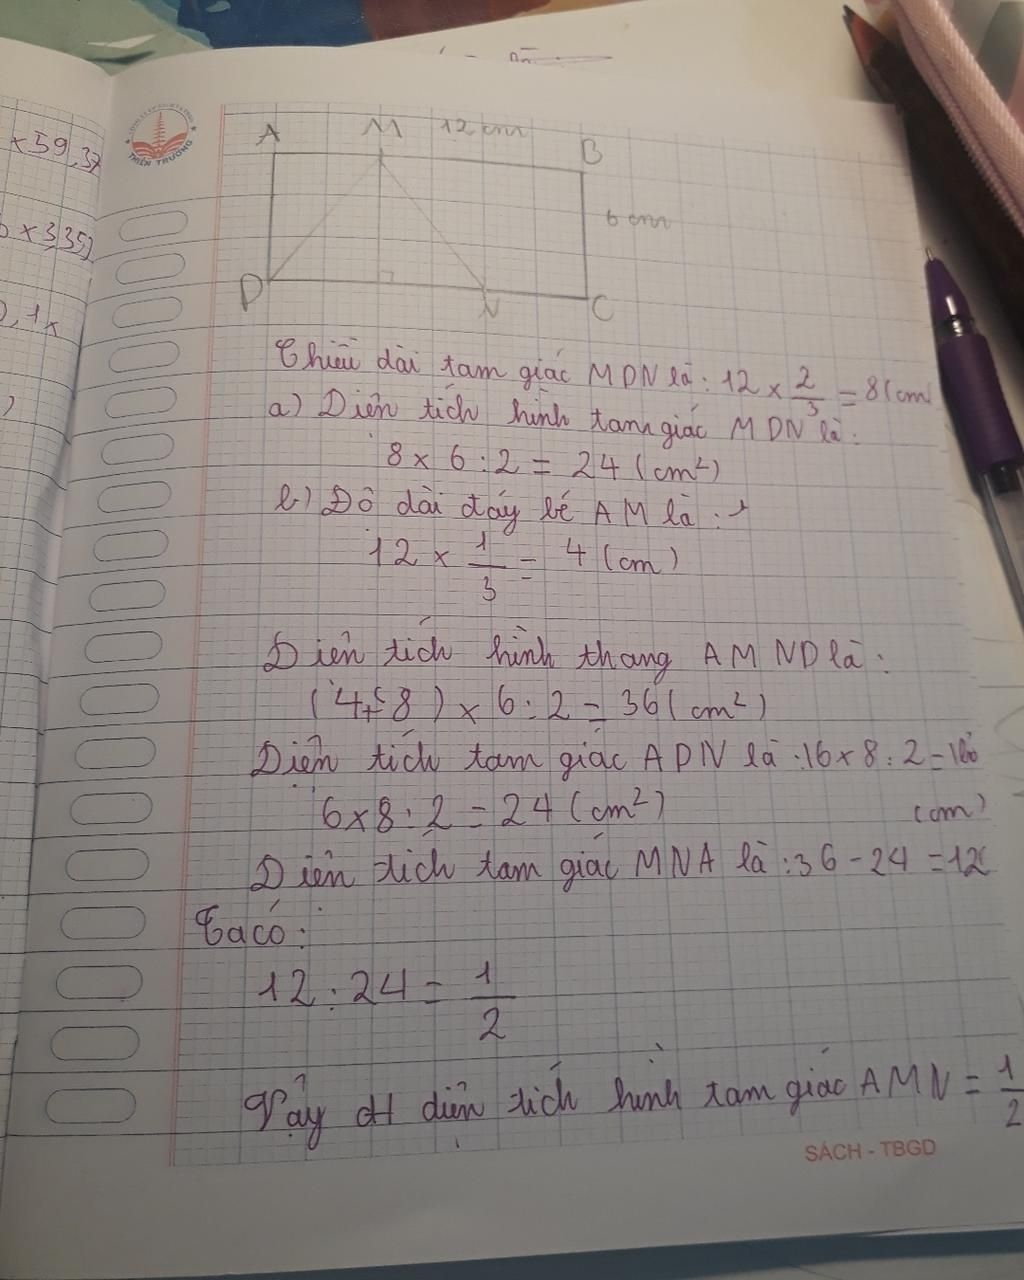 x59,37
x3,35
0,1x
THIÊN TRƯỜNG
A M 12 cm B
6 cm
D N C
Chiều dài tam giác MDN là: 12 x 2/3 = 8 (cm
a) Diện tích hình tam giác MDN là:
8 x 6 : 2 = 24 (cm²)
b) Độ dài đáy bé AM là:
12 x 1/3 = 4 (cm)
Diện tích hình thang AMND là:
(4 + 8) x 6 : 2 = 36 (cm²)
Diện tích tam giác ADN là: 16 x 8 : 2 =
6 x 8 : 2 = 24 (cm²) (cm)
Diện tích tam giác MNA là: 36 - 24 = 12(
Ta có:
12 : 24 = 1/2
Vậy dt diện tích hình tam giác AMN = 1/2
SÁCH - TBGD